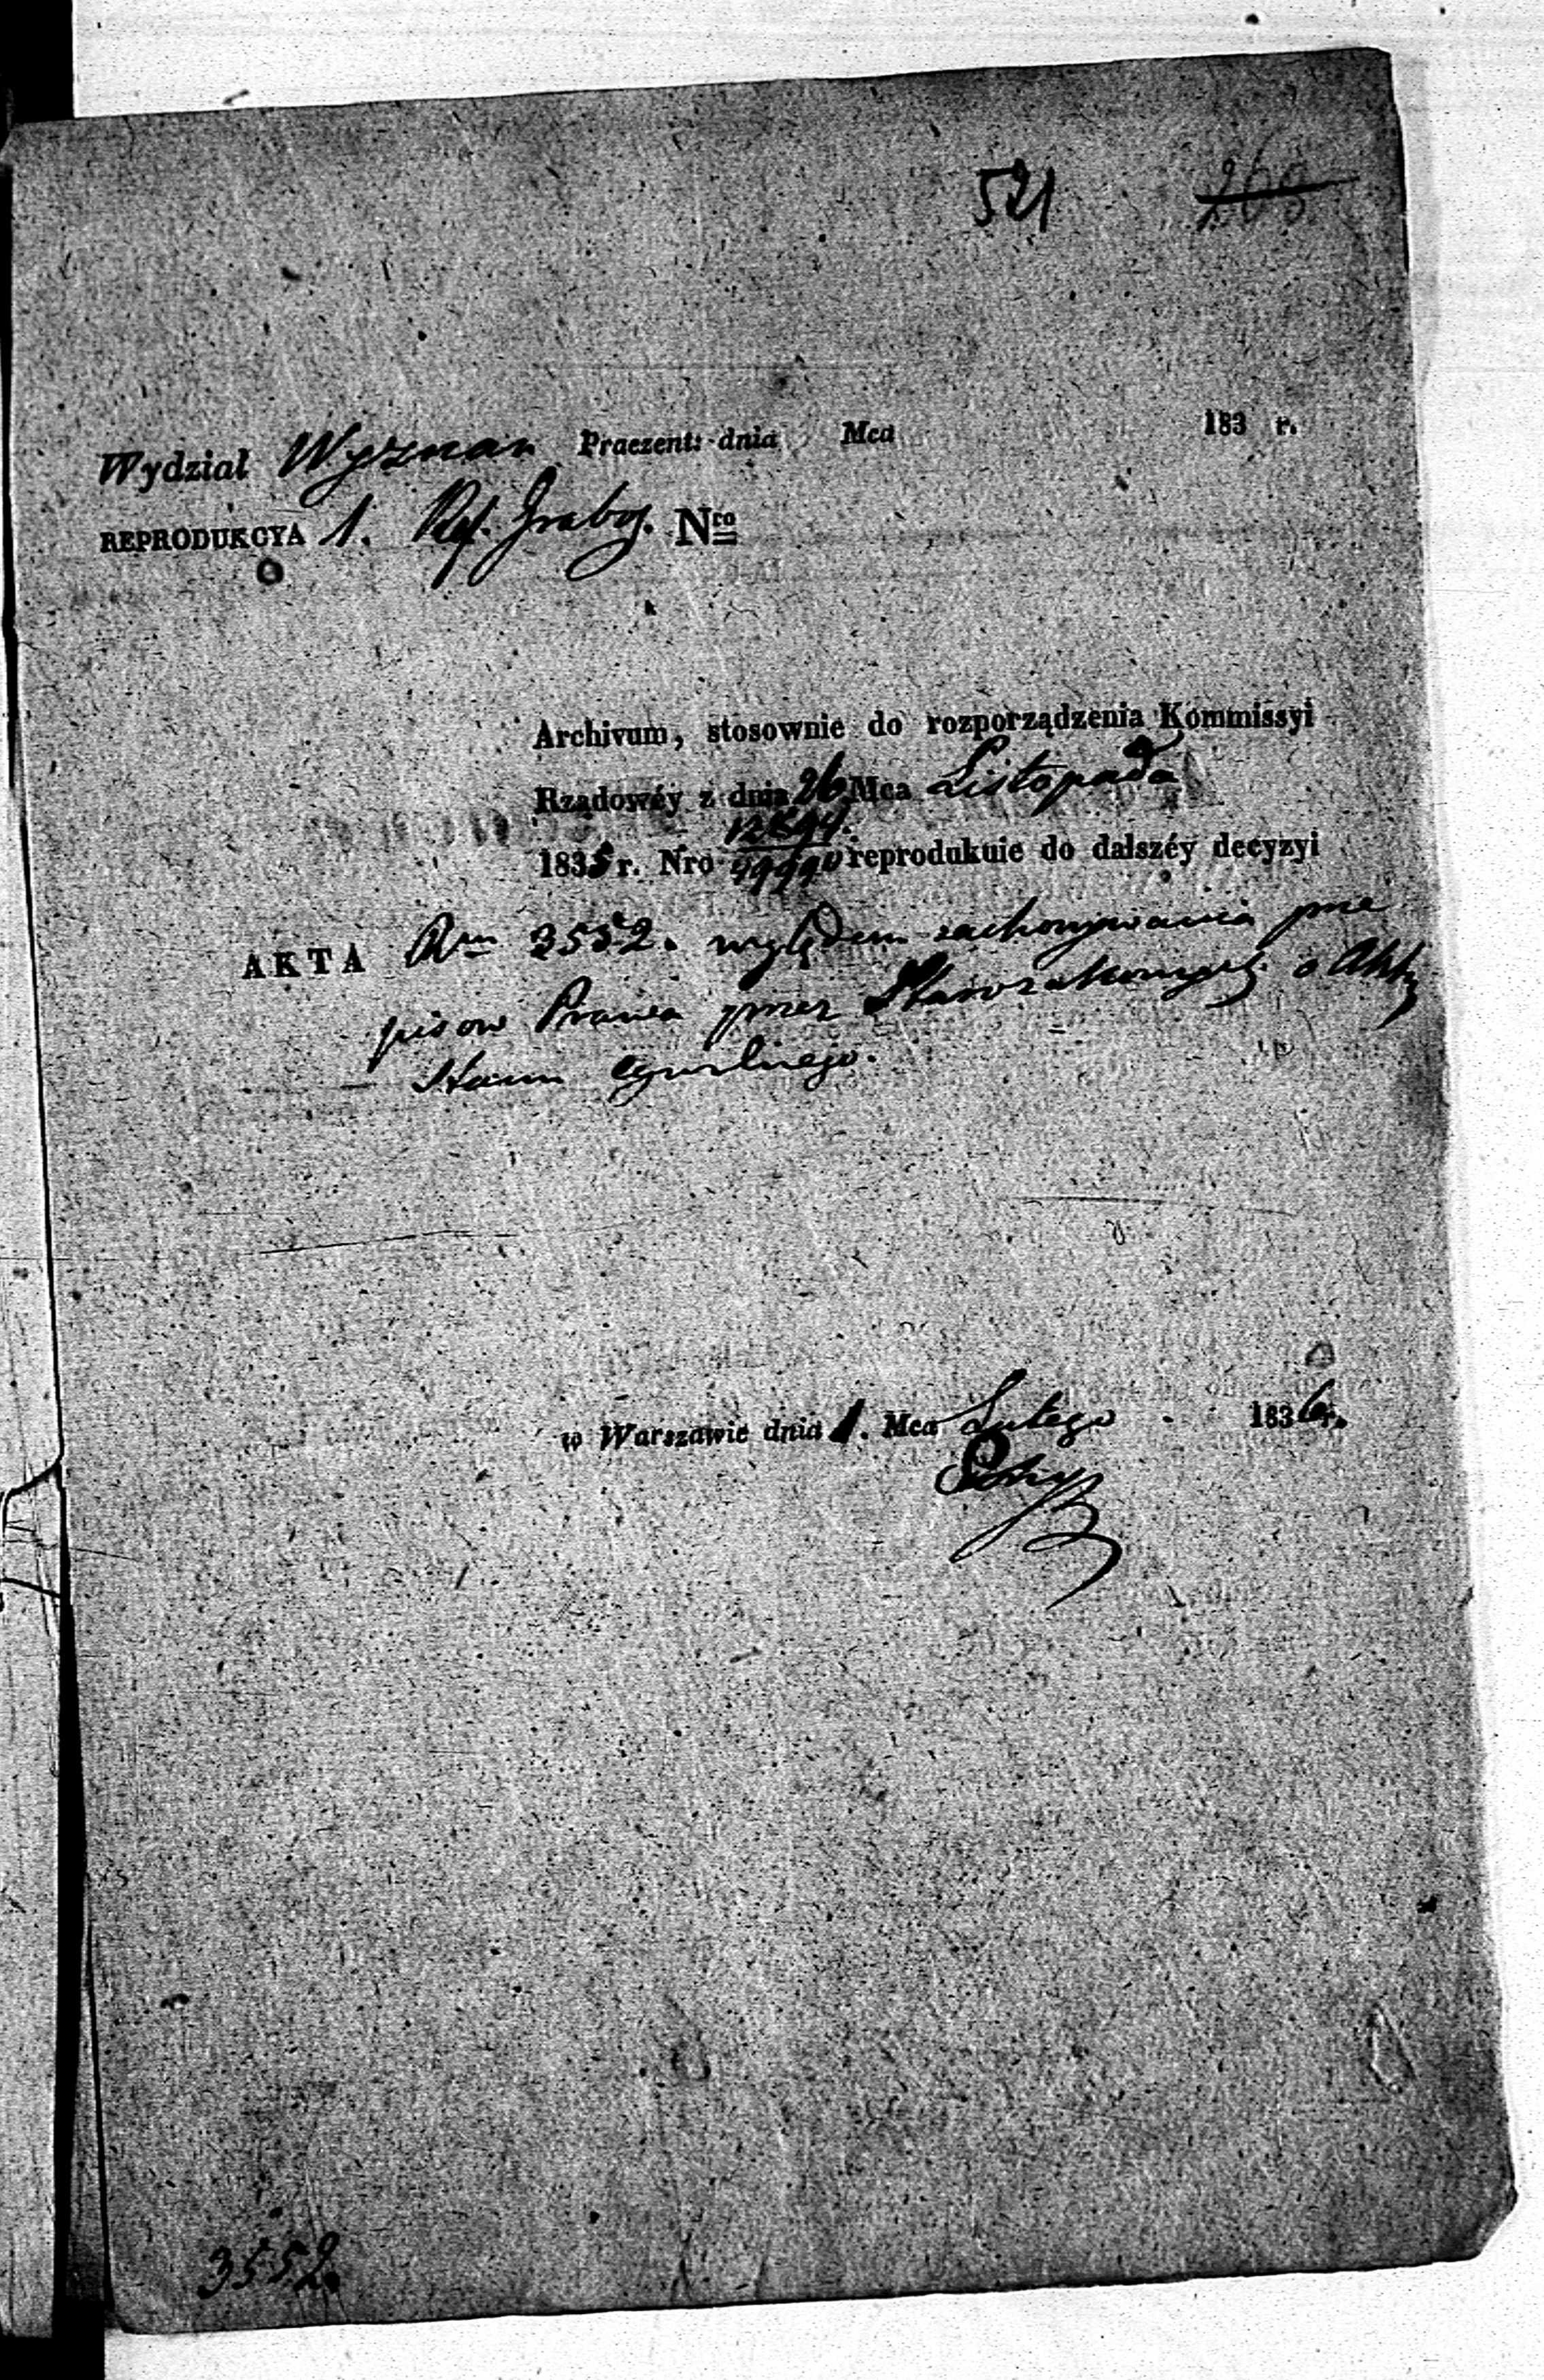 521 265
Wydział Wyznan Praezent: dnia Mca 183 r.
REPRODUKCYA 1. Ref. Grabos. Nro
Archivum, stosownie do rozporządzenia Kommissyi
Rządowéy z dnia 26 Mca Listopada
1835 r. Nro 12894 reprodukuie do dalszéy decyzyi
AKTA Rm 3552. względem zachowywania prze
pisow Prawa przez Starozakonnych o Akty
Stanu Cywilnego.
w Warszawie dnia 1. Mca Lutego 1836 r.
3552.